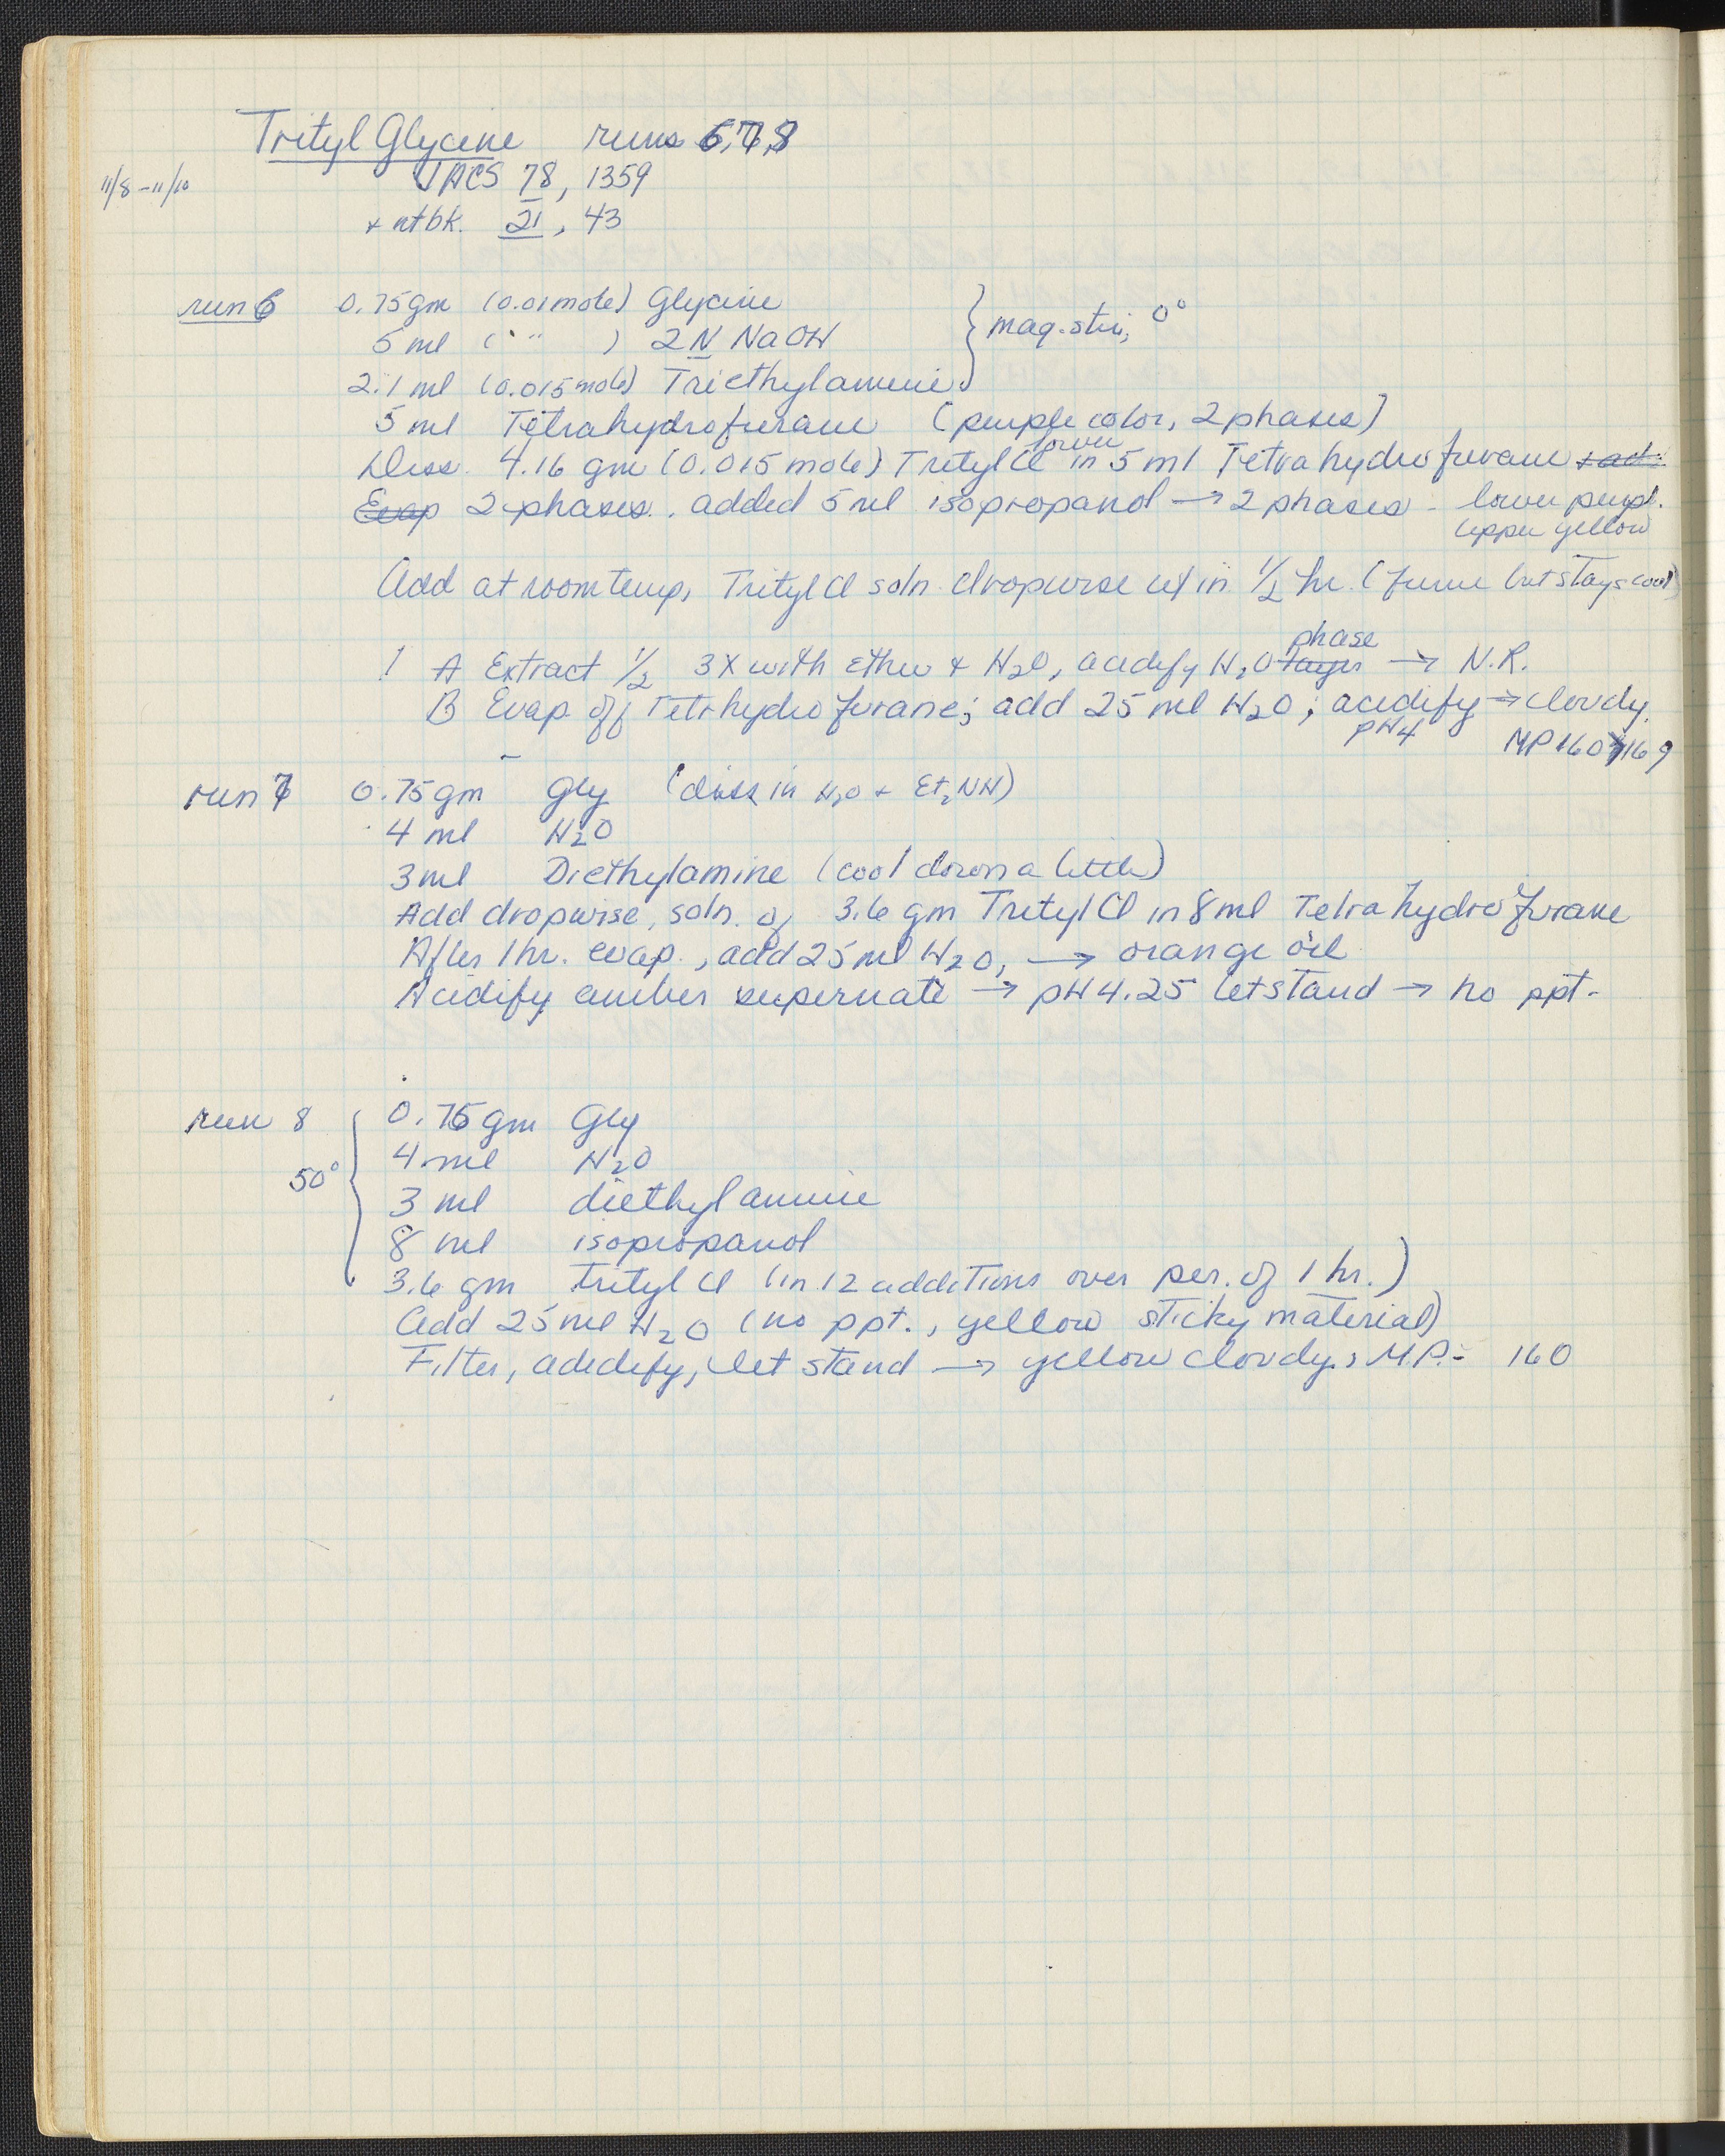 Trityl Glycine runs 6,7,8
11/8-11/10 JACS 78, 1359
+ ntbk. 21, 43
run 6 0.75gm (0.01mole) Glycine
5 ml ( " " ) 2N NaOH } mag. stir, 0°
2.1 ml (0.015mole) Triethylamine
5 ml Tetrahydrofurane (purple color, 2 phases)
lower
Diss. 4.16 gm (0.015 mole) Trityl Cl in 5 ml Tetrahydrofurane + ad
Evap 2 phases. added 5 ml isopropanol → 2 phases - lower purpl.
upper yellow
Add at room temp, Trityl Cl soln dropwise w/in 1/2 hr. (fume but stays cool)
phase
! A Extract 1/2 3X with ether + H2O, acidify H2O layer → N.R.
B Evap off Tetrhydrofurane; add 25 ml H2O; acidify → cloudy.
pH4 MP 160-169
run 7 0.75gm Gly (diss in H2O + Et2NH)
4 ml H2O
3ml Diethylamine (cool down a little)
Add dropwise, soln. of 3.6 gm Trityl Cl in 8ml Tetrahydrofurane
After 1hr. evap., add 25 ml H2O, → orange oil
Acidify amber supernate → pH 4.25 let stand → no ppt-
run 8 0.75 gm Gly
4 ml H2O
50° { 3 ml diethylamine
8 ml isopropanol
3.6 gm trityl Cl (in 12 additions over per. of 1 hr.)
Add 25 ml H2O (no ppt., yellow sticky material)
Filter, acidify, let stand → yellow cloudy, M.P.= 160